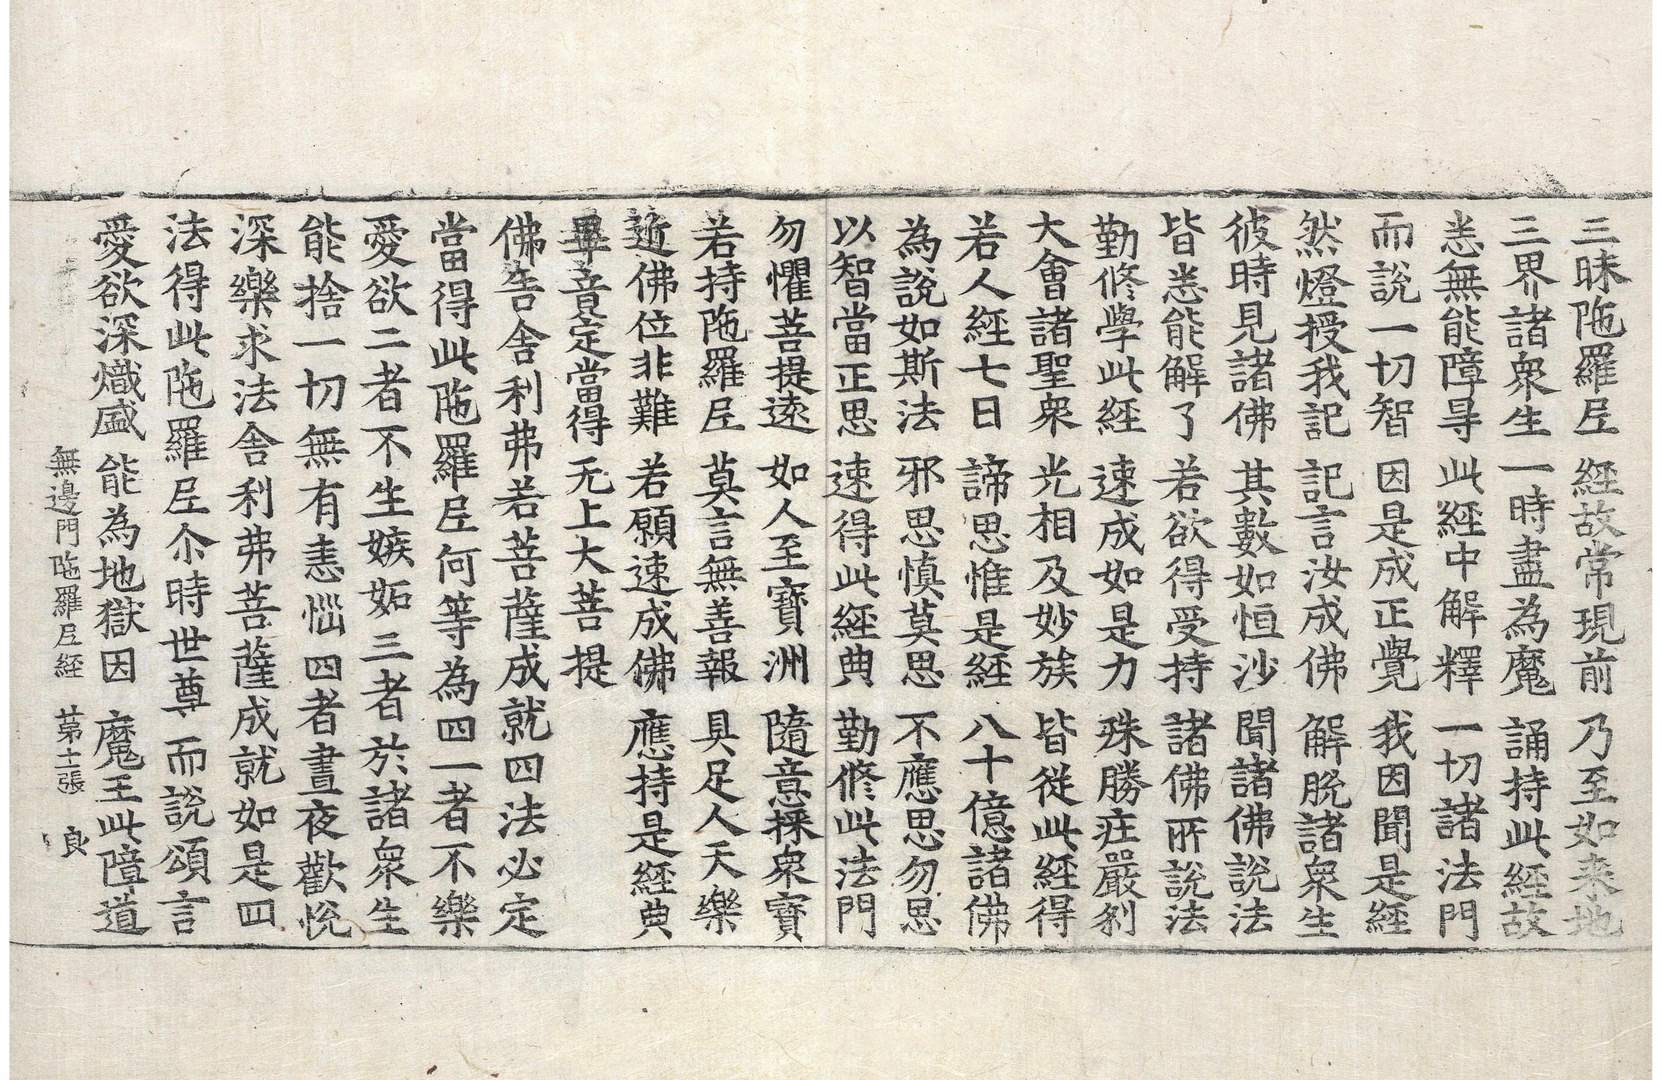 三昧陁羅尼 經故常現前 乃至如来地
三界諸衆生 一時盡為魔 誦持此經故
悉無能障㝵 此經中解釋 一切諸法門
而說一切智 因是成正覺 我因聞是經
然燈授我記 記言汝成佛 解脫諸衆生
彼時見諸佛 其數如恒沙 聞諸佛說法
皆悉能解了 若欲得受持 諸佛所說法
勤修學此經 速成如是力 殊勝庄嚴刹
大會諸聖衆 光相及妙族 皆從此經得
若人經七日 諦思惟是經 八十億諸佛
為說如斯法 邪思慎莫思 不應思勿思
以智當正思 速得此經典 勤修此法門
勿懼菩提遠 如人至寶洲 隨意採衆寶
若持陁羅尼 莫言無善報 具足人天樂
近佛位非難 若願速成佛 應持是經典
畢音定當得 无上大菩提
佛告舍利弗若菩薩成就四法必定
當得此陁羅尼何等為四一者不樂
愛欲二者不生嫉妬三者於諸衆生
能捨一切無有恚惱四者晝夜歡悅
深樂求法舍利弗菩薩成就如是四
法得此陁羅尼尒時世尊而說頌言
愛欲深熾盛 能為地獄因 魔王此障道
無邊門陁羅尼經 苐十張 良